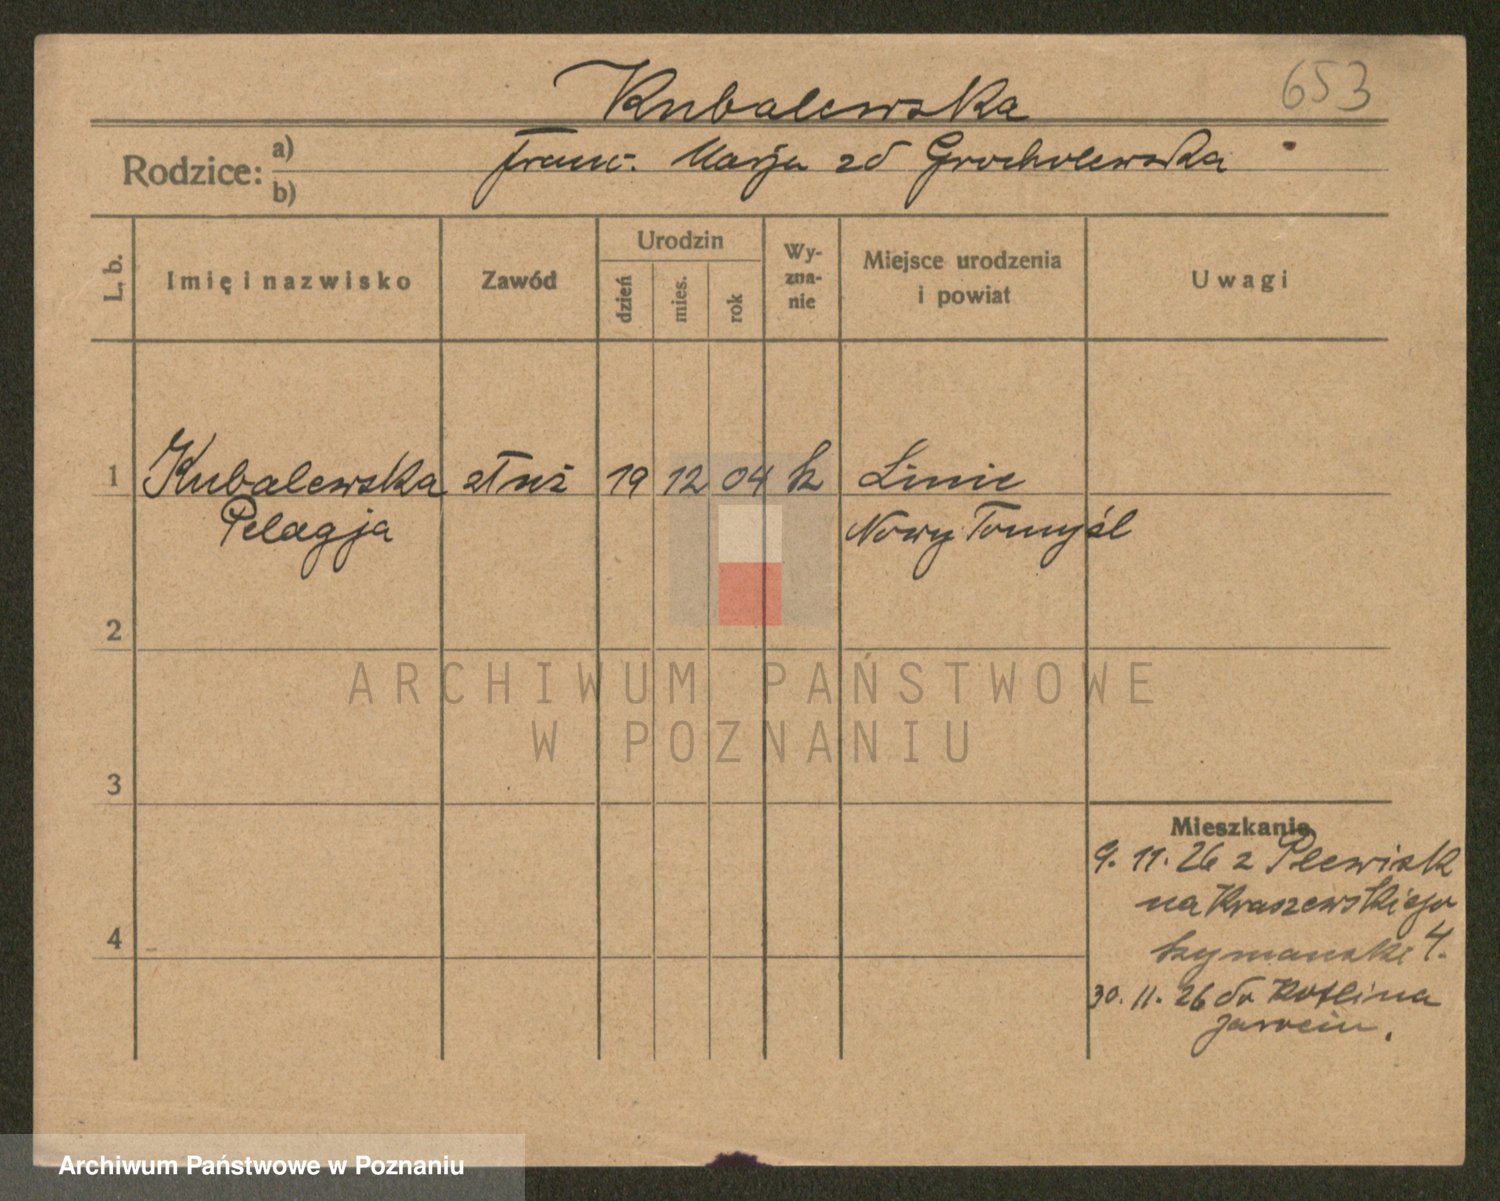 653
Kubalewska
Rodzice: a) Franc. Marja zd Grocholewska
b)
L. b.
Imię i nazwisko
Zawód
Urodzin
dzień
mies.
rok
Wy-
zna-
nie
Miejsce urodzenia
i powiat
Uwagi
1 Kubalewska służ 19 12 04 k Linie
Pelagja Nowy Tomyśl
2
3
4
Mieszkanie
9. 11. 26 z Plewisk
na Kraszewskiego
Szymanski 4.
30. 11. 26 do Kotlina
Jarocin.
ARCHIWUM PAŃSTWOWE
W POZNANIU
Archiwum Państwowe w Poznaniu